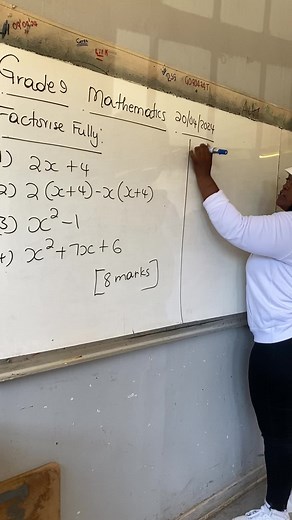 Grade 9 Mathematics 20/04/2024
Factorise Fully:
1) 2x + 4
2) 2(x+4)-x(x+4)
3) x²-1
4) x²+7x+6
[8 marks]